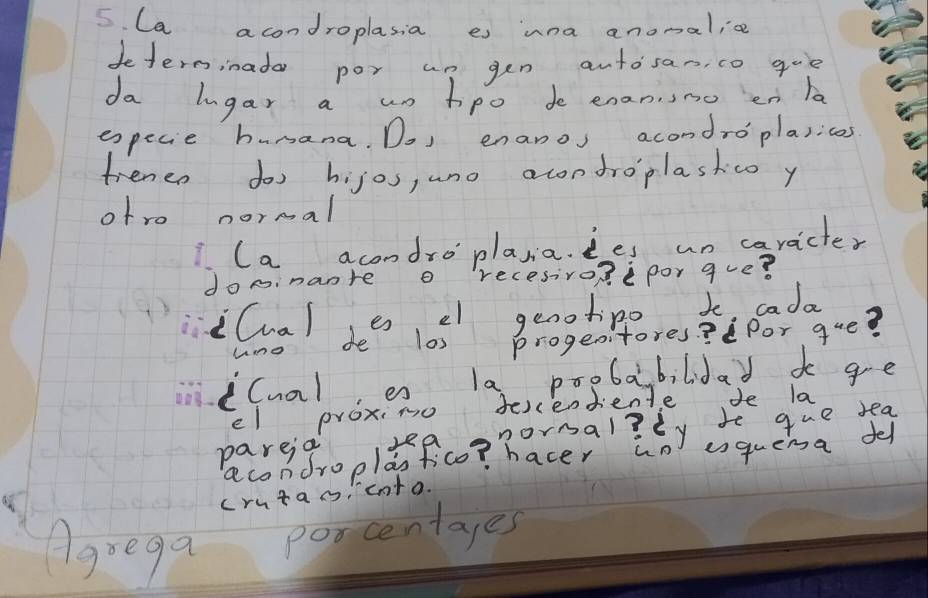 5. La acondroplasia es una anomalia
determinada por un gen autósamico que
da lugar a un tipo de enanismo en la
especie humana. Dos enanos acondróplasicos
tienen dos hijos, uno acondróplastico y
otro normal
i. La acondróplasia. ¿es un carácter
dominante o recesivo? ¿por que?
ii. ¿Cual es el genotipo de cada
uno de los progenitores? ¿Por que?
iii. ¿Cual es la probabilidad de que
el próximo descendiente de la
pareja sea normal? ¿y de que sea
acondroplástico? hacer un esquema del
crutamiento.
Agrega porcentajes